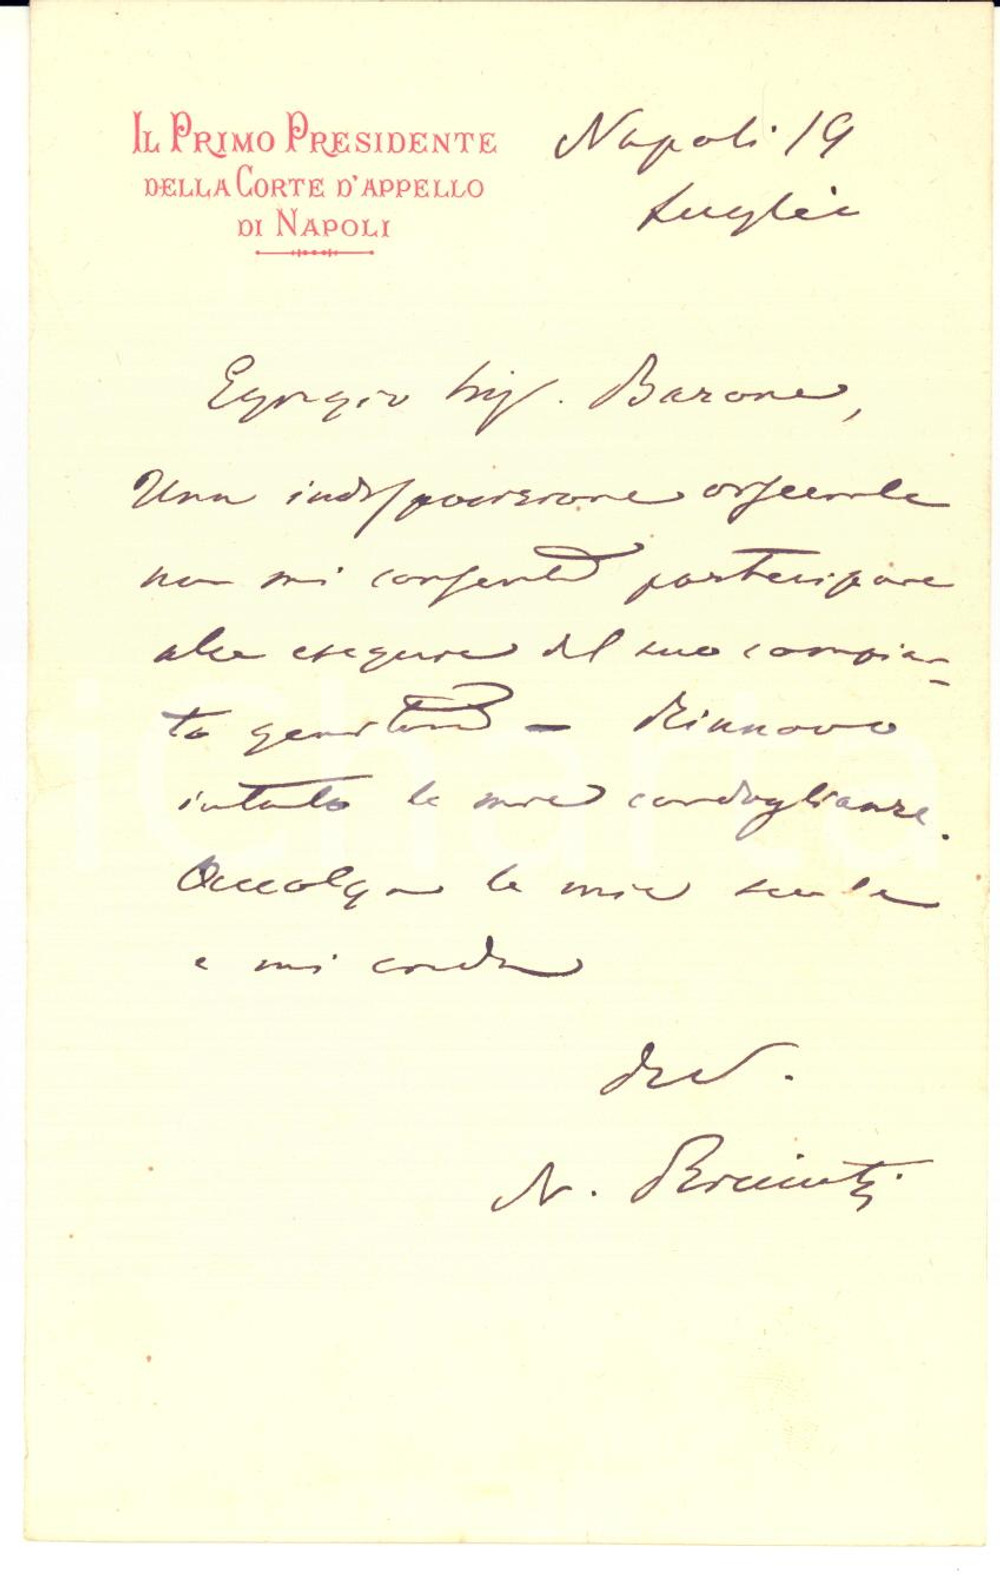 IL PRIMO PRESIDENTE
DELLA CORTE D'APPELLO
DI NAPOLI
Napoli 19
Luglio
Egregio Sig. Barone,
Una indisposizione
non mi consente partecipare
alle esequie del suo compian-
to genitore — Rinnovo
intanto le mie condoglianze.
Accolga le mie scuse
e mi creda
Dev.
N.